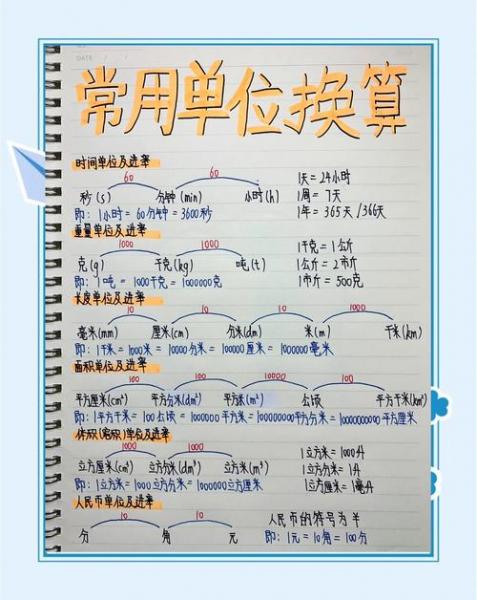 DATE
常用单位换算
时间单位及进率
60 60
秒(s) 分钟(min) 小时(h)
即: 1小时 = 60分钟 = 3600秒
1天 = 24小时
1周 = 7天
1年 = 365天/366天
重量单位及进率
1000 1000
克(g) 千克(kg) 吨(t)
即: 1吨 = 1000千克 = 1000000克
1千克 = 1公斤
1公斤 = 2市斤
1市斤 = 500克
长度单位及进率
10 10 10 1000
毫米(mm) 厘米(cm) 分米(dm) 米(m) 千米(km)
即: 1千米 = 1000米 = 10000分米 = 100000厘米 = 1000000毫米
面积单位及进率
100 100 10000 100
平方厘米(cm²) 平方分米(dm²) 平方米(m²) 公顷 平方千米(km²)
即: 1平方千米 = 100公顷 = 1000000平方米 = 100000000平方分米 = 10000000000平方厘米
体积(容积)单位及进率
1000 1000
立方厘米(cm³) 立方分米(dm³) 立方米(m³)
即: 1立方米 = 1000立方分米 = 1000000立方厘米
1立方米 = 1000升
1立方分米 = 1升
1立方厘米 = 1毫升
人民币单位及进率
10 10
分 角 元
人民币的符号为¥
即: 1元 = 10角 = 100分